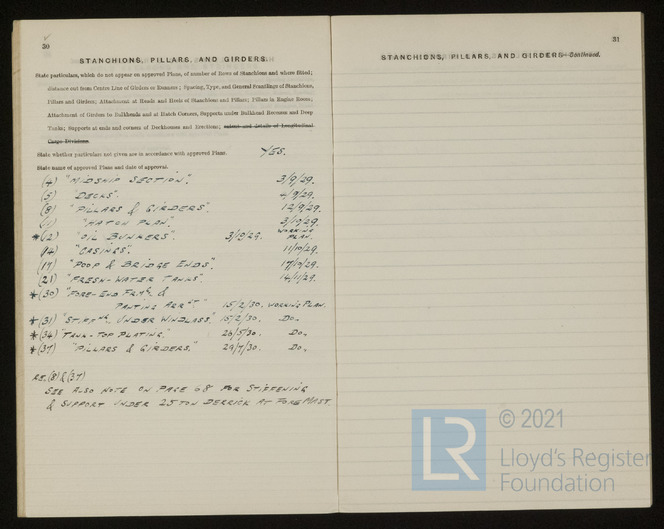 30
STANCHIONS, PILLARS, AND GIRDERS.
State particulars, which do not appear on approved Plans, of number of Rows of Stanchions and where fitted;
distance out from Centre Line of Girders or Runners; Spacing, Type, and General Scantlings of Stanchions,
Pillars and Girders; Attachment at Heads and Heels of Stanchions and Pillars; Pillars in Engine Room;
Attachment of Girders to Bulkheads and at Hatch Corners, Supports under Bulkhead Recesses and Deep
Tanks; Supports at ends and corners of Deckhouses and Erections; extent and details of Longitudinal
Cargo Divisions.
State whether particulars not given are in accordance with approved Plans. YES.
State name of approved Plans and date of approval.
(4) "MIDSHIP SECTION". 3/9/29.
(5) "DECKS". 4/9/29.
(8) "PILLARS & GIRDERS". 12/9/29.
"HATCH PLAN". 3/10/29.
*(12) "OIL BUNKERS". 3/10/29. WORKING PLAN.
(14) "CASINGS". 11/10/29.
(17) "POOP & BRIDGE ENDS". 17/10/29.
(21) "FRESH-WATER TANKS". 14/11/29.
*(30) "FORE-END FRMG. &
PANTING ARRT" 15/2/30. WORKING PLAN.
*(31) "STIFFNG. UNDER WINDLASS." 15/2/30. Do.
*(34) "TANK-TOP PLATING." 26/5/30. Do.
*(37) "PILLARS & GIRDERS." 29/7/30. Do.
RE. (8) & (37)
SEE ALSO NOTE ON PAGE 68 FOR STIFFENING
& SUPPORT UNDER 25 TON DERRICK AT FOREMAST.
31
STANCHIONS, PILLARS, AND GIRDERS—Continued.
LR
© 2021
Lloyd's Register
Foundation